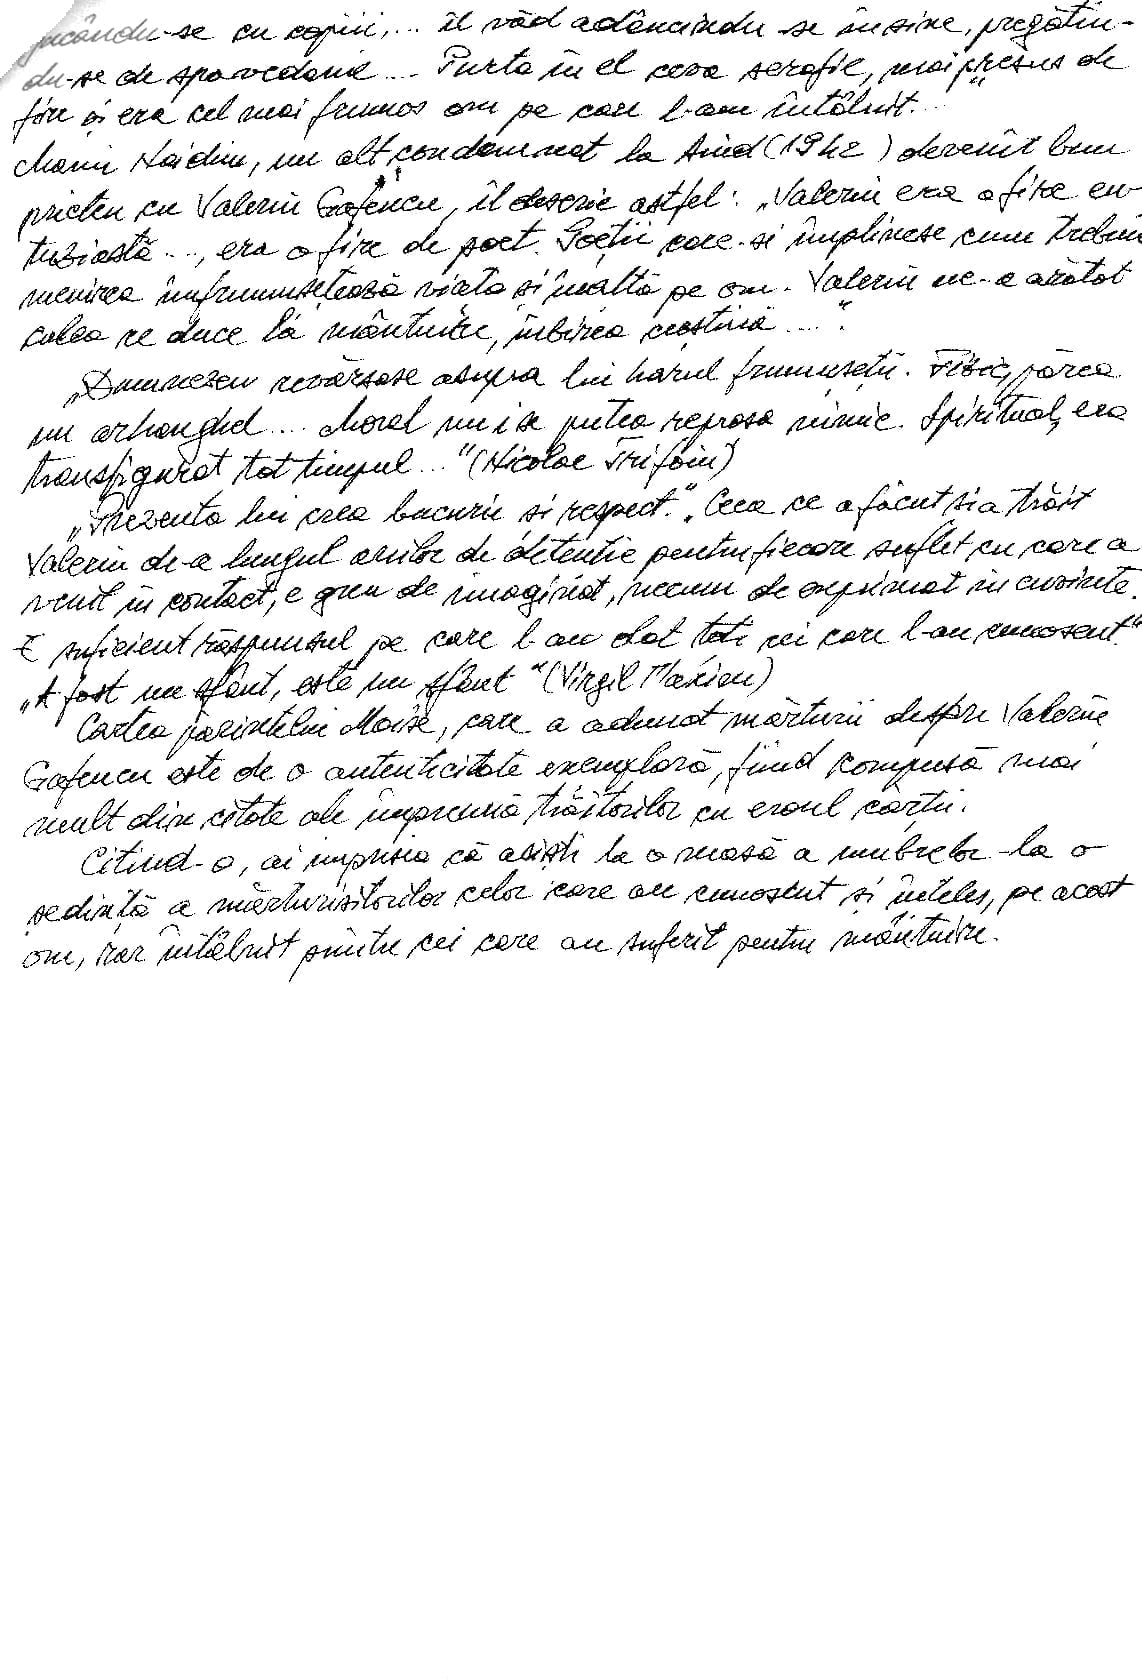 jucându-se cu copiii,... îl văd adâncindu-se în sine, pregătin-
du-se de spovedanie... Purta în el ceva serafic, mai presus de
fire și era cel mai frumos om pe care l-am întâlnit...
Marin Naidim, un alt condamnat la Aiud (1942) devenit bun
prieten cu Valeriu Gafencu, îl descrie astfel: „Valeriu era o fire en-
tuziastă..., era o fire de poet. Poeții care-și împlinesc cum trebuie
menirea înfrumusețează viața și înalță pe om. Valeriu ne-a arătat
calea ce duce la mântuire, iubirea creștină....".
„Dumnezeu revărsase asupra lui harul frumuseții. Fizic, părea
un arhanghel... Moral nu i se putea reproșa nimic. Spiritual, era
transfigurat tot timpul..." (Nicolae Trifoiu)
„Prezența lui crea bucurie și respect." „Ceea ce a făcut și a trăit
Valeriu de-a lungul anilor de detenție pentru fiecare suflet cu care a
venit în contact, e greu de imaginat, necum de exprimat în cuvinte.
E suficient răspunsul pe care l-au dat toți cei care l-au cunoscut."
„A fost un sfânt, este un sfânt" (Virgil Maxim)
Cartea părintelui Moise, care a adunat mărturii despre Valeriu
Gafencu este de o autenticitate exemplară, fiind compusă mai
mult din citate ale împreună trăitorilor cu eroul cărții.
Citind-o, ai impresia că asiști la o masă a umbrelor - la o
ședință a mărturisitorilor celor care au cunoscut și înțeles, pe acest
om, rar întâlnit printre cei care au suferit pentru mântuire.